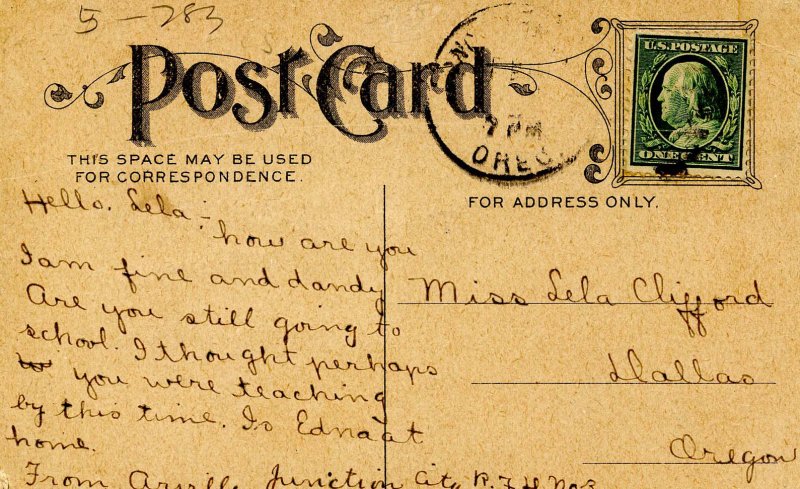 5-783
Post Card
THIS SPACE MAY BE USED
FOR CORRESPONDENCE.
7 PM
OREG.
U.S. POSTAGE
ONE CENT
FOR ADDRESS ONLY.
Hello, Lela:-
how are you
I am fine and dandy
Are you still going to
school. I thought perhaps
you were teaching
by this time. Is Edna at
home.
From Junction City R.F.D. No 3
Miss Lela Clifford
Dallas
Oregon